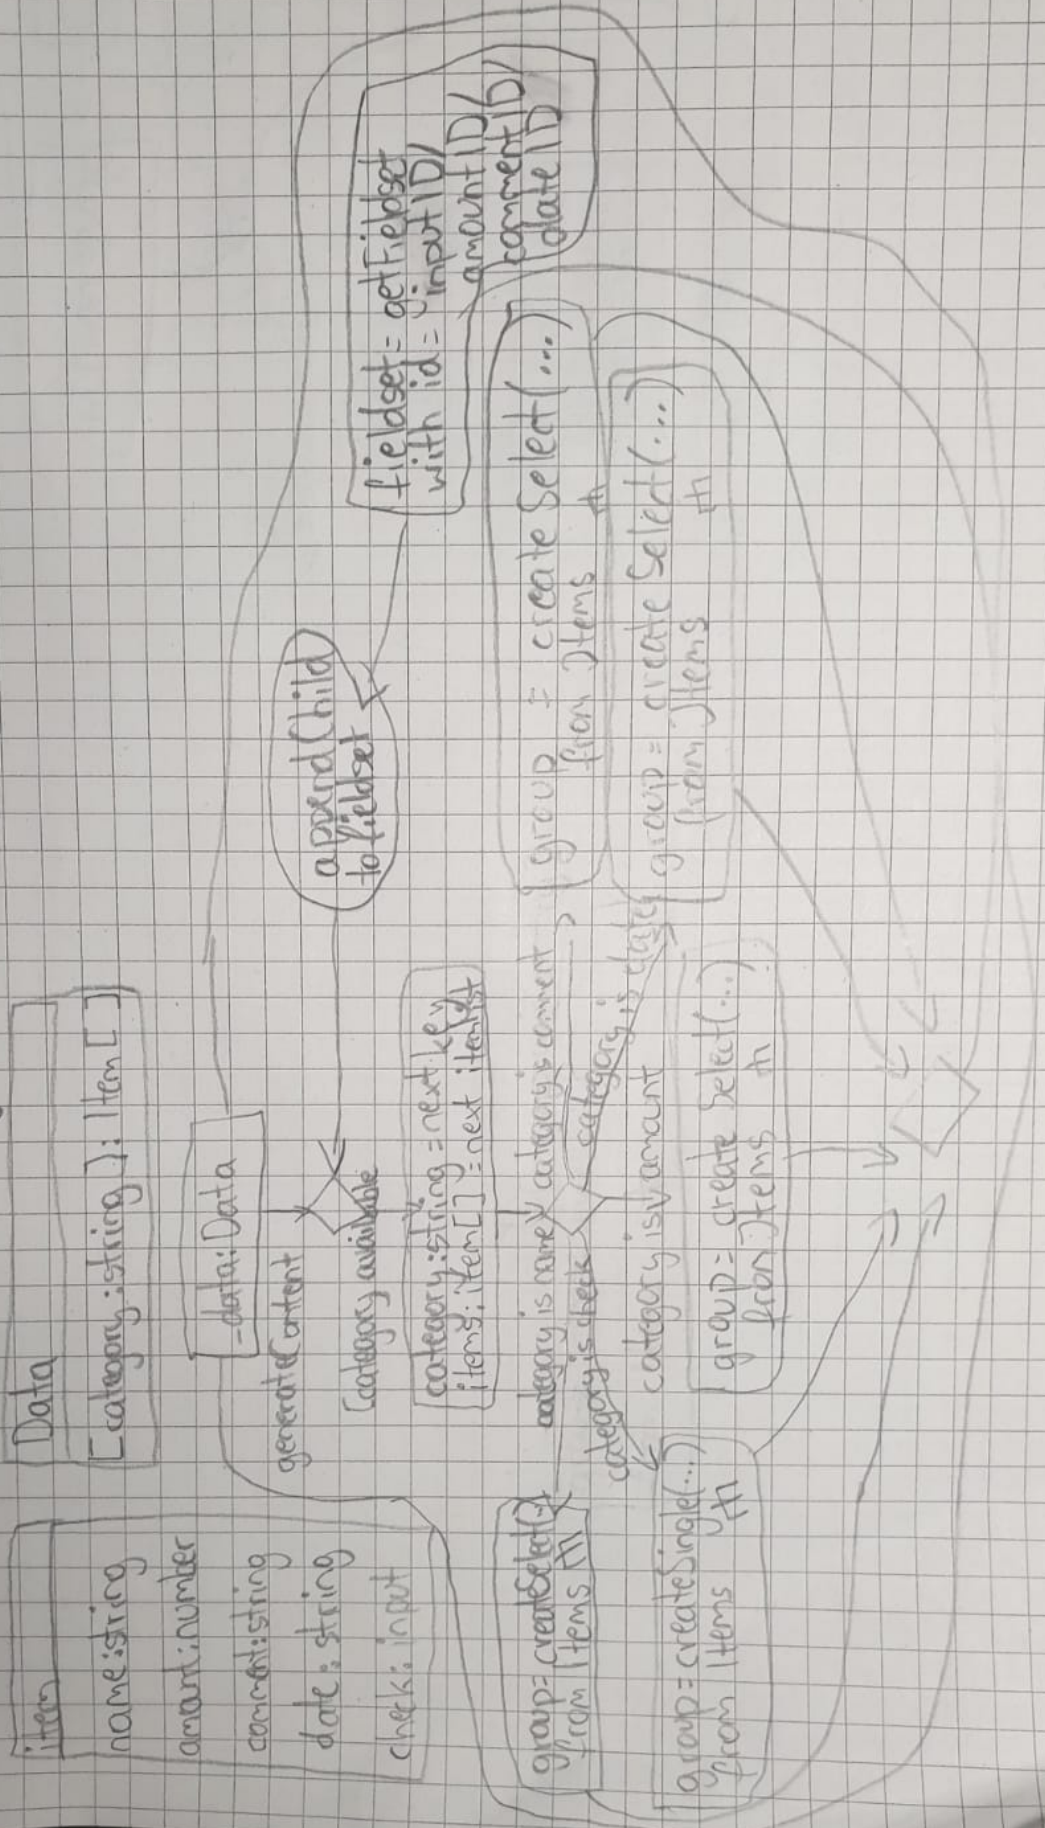 item
name:string
amount:number
comment:string
date:string
check:input
Data
[category:string]:Item[]
-data:Data
generateContent
[category available
category:string = next key
items:item[] = next itemlist
category is name
category is comment
category is check
category is date
category is amount
group=createSelect(...)
from Items
group=createSingle(...)
from Items
group=createSelect(...)
from Items
group = createSelect(...)
from Items
group = createSelect(...)
from Items
appendChild
to fieldset
fieldset = getFieldset
with id = inputID/
amountID/
commentID/
dateID